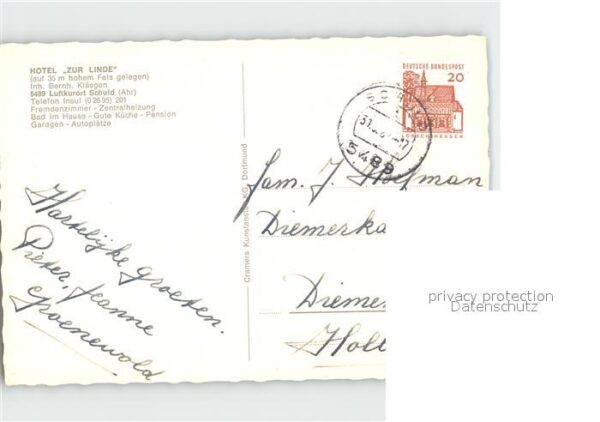 HOTEL „ZUR LINDE"
(auf 35 m hohem Fels gelegen)
Inh. Bernh. Kläsgen
5489 Luftkurort Schuld (Ahr)
Telefon Insul (0 26 95) 201
Fremdenzimmer - Zentralheizung
Bad im Hause - Gute Küche - Pension
Garagen - Autoplätze
DEUTSCHE BUNDESPOST
20
LORSCH/HESSEN
5489
Cramers Kunstanstalt KG, Dortmund
Hartelijke groeten.
Pieter, Jeanne
Groenewold
Fam. J. Hofman
Diemerka
Dieme
Holl
privacy protection
Datenschutz